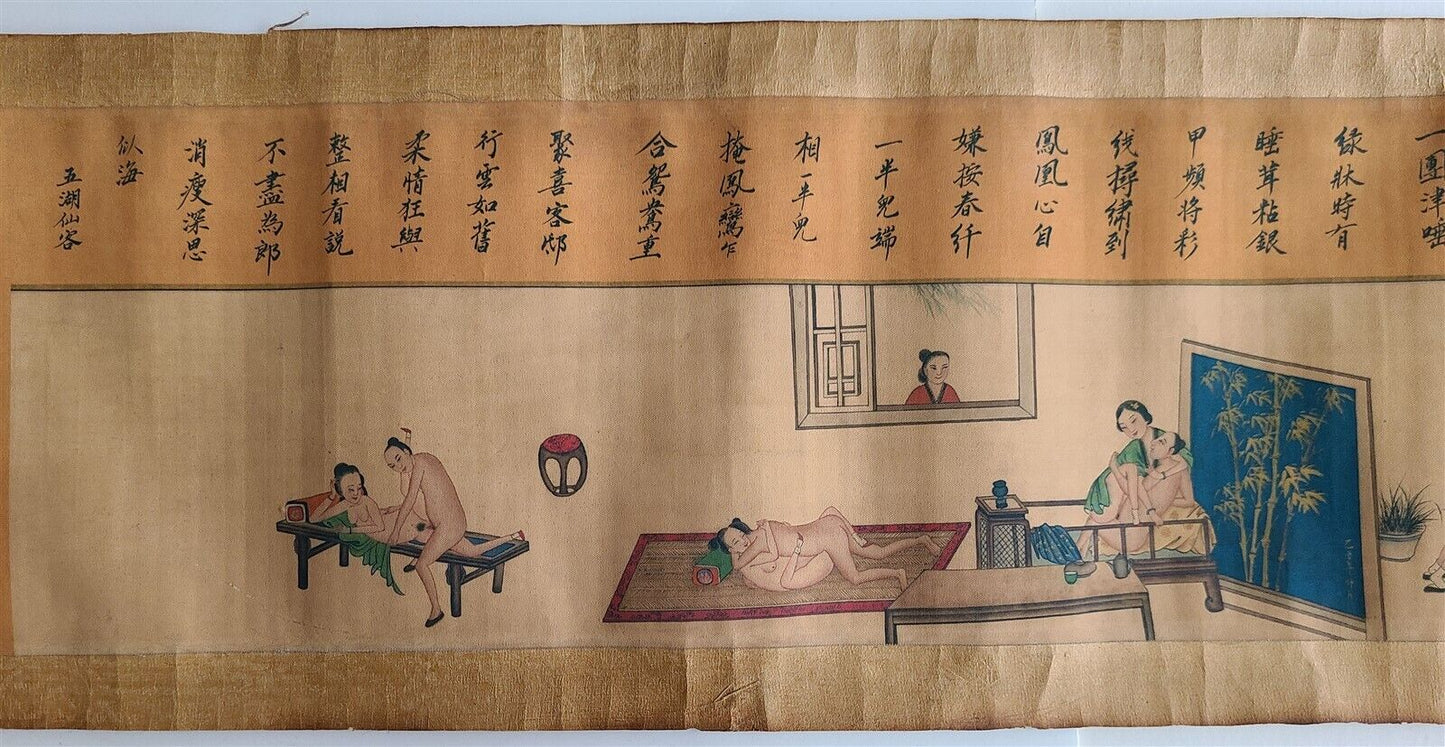 一團津唾
绿牀時有
睡茸粘銀
甲頻將彩
线撏繡到
鳳凰心自
嫌按春纤
一半皃端
相一半皃
掩鳳鸞乍
合鴛鴦重
聚喜客邸
行雲如舊
柔情狂與
整相看説
不盡為郎
消瘦深思
似海
五湖仙客